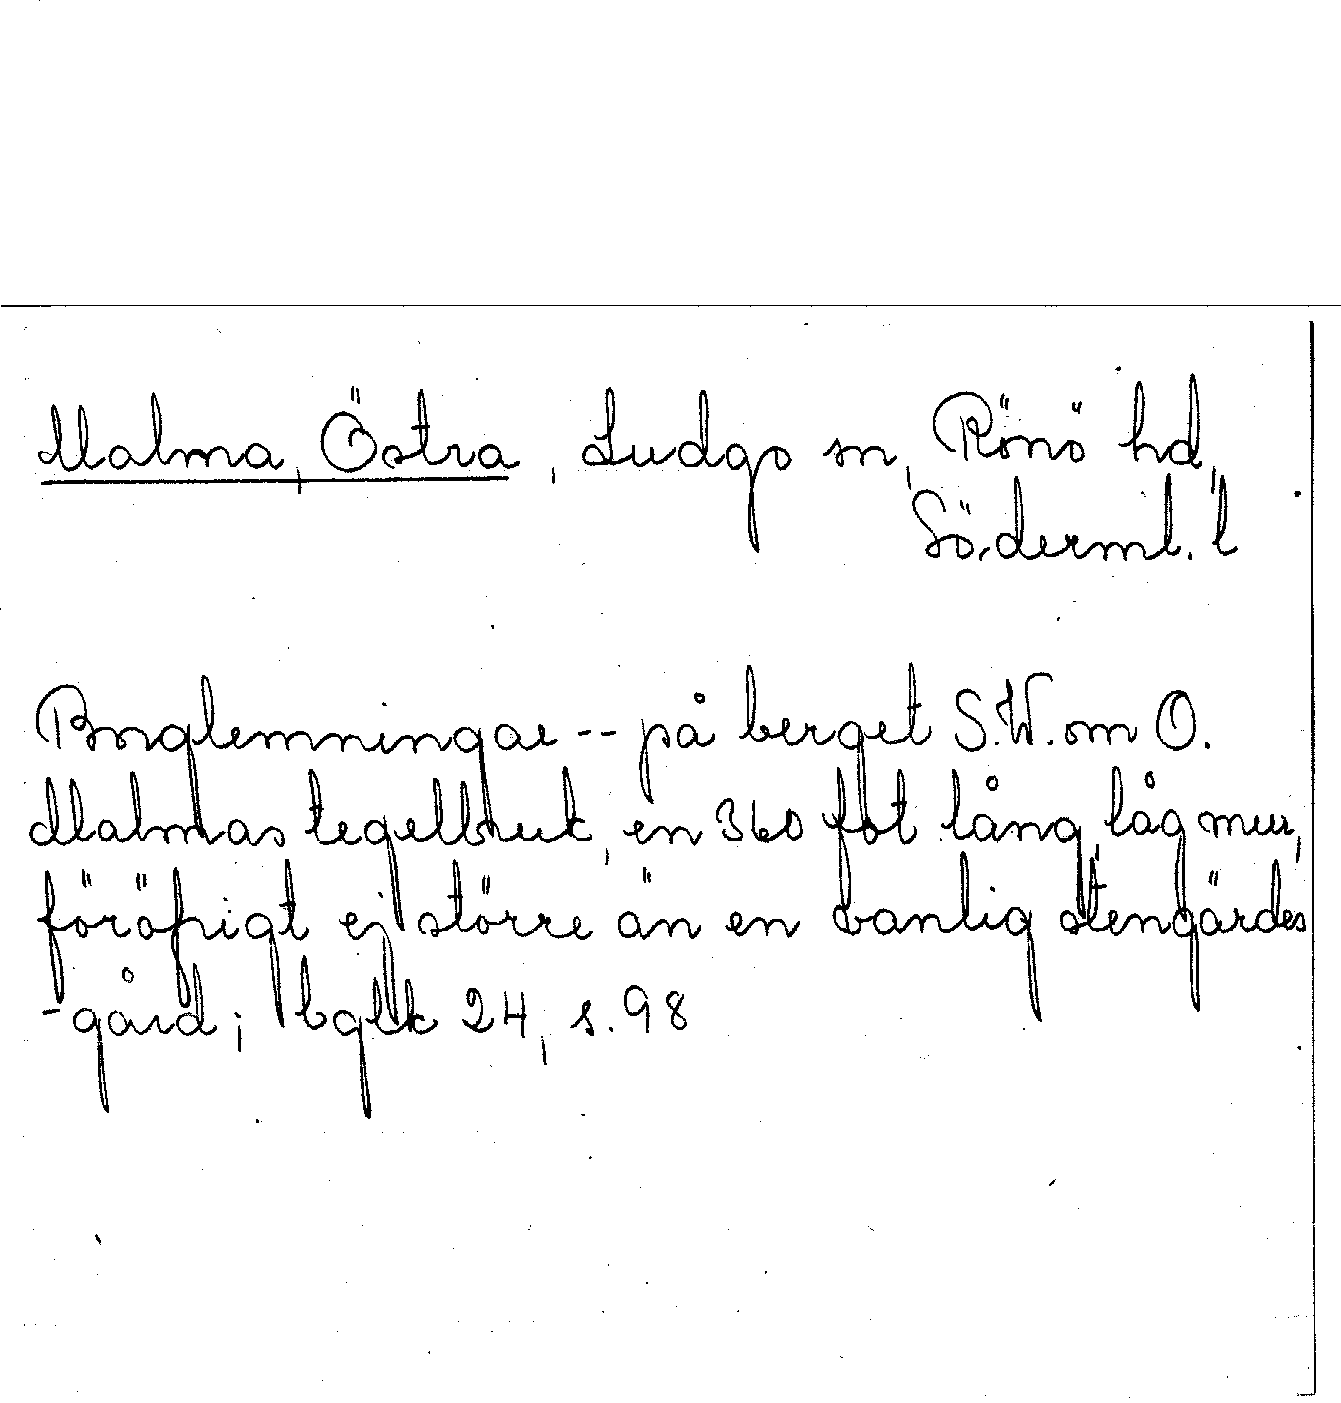 Malma, Östra, Ludgo sn, Rönö hd,
Söderml. l
Borglemningar -- på berget S.W. om O.
Malmas tegelbruk, en 360 fot lång, låg mur,
föröfrigt ej större än en vanlig stengärdes
-gård; bglk 24, s. 98